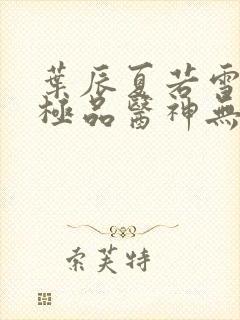 葉辰夏若雪
極品醫神無
索芙特